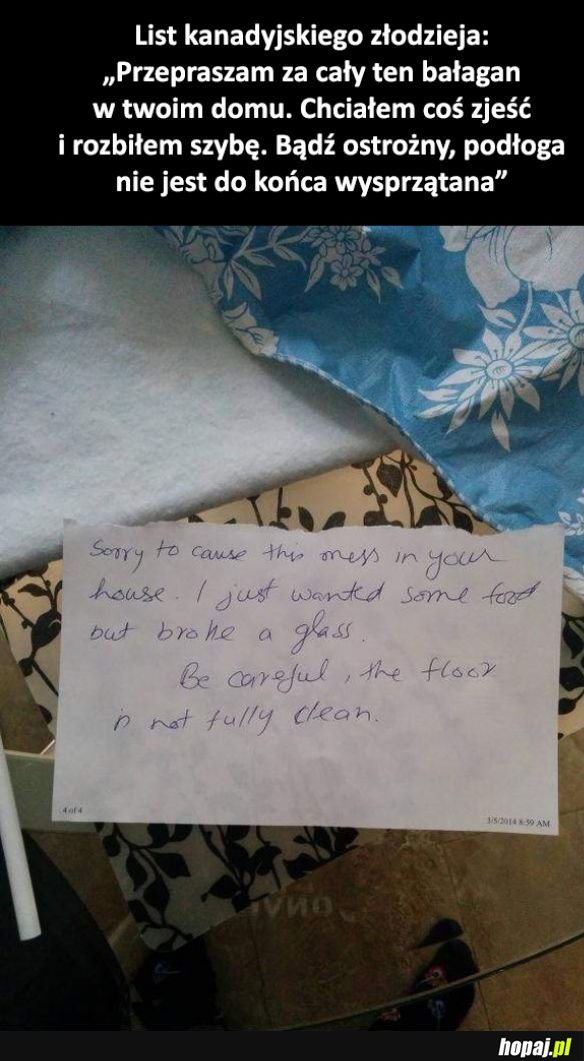 List kanadyjskiego złodzieja:
„Przepraszam za cały ten bałagan
w twoim domu. Chciałem coś zjeść
i rozbiłem szybę. Bądź ostrożny, podłoga
nie jest do końca wysprzątana”
Sorry to cause this mess in your
house. I just wanted some food
but broke a glass.
Be careful, the floor
is not fully clean.
4 of 4
3/5/2014 8:59 AM
hopaj.pl